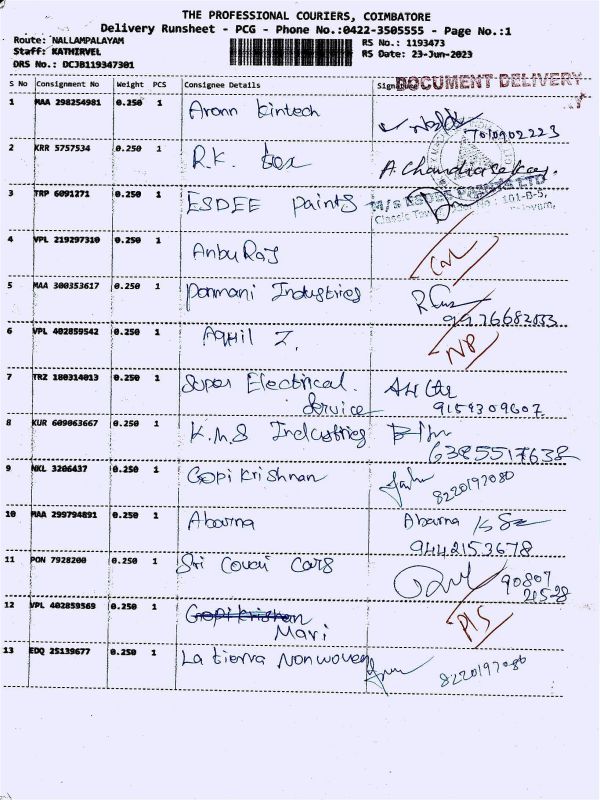 THE PROFESSIONAL COURIERS, COIMBATORE
Delivery Runsheet - PCG - Phone No.:0422-3505555 - Page No.:1
Route: NALLAMPALAYAM RS No.: 1193473
Staff: KATHIRVEL RS Date: 23-Jun-2023
DRS No.: DCJB119347301
S No Consignment No Weight PCS Consignee Details
DOCUMENT DELIVERY
1 MAA 298254981 0.250 1 Aronn Kintech
7010902223
2 KRR 5757534 0.250 1 R.K. Tex A Chandrasekar.
3 TRP 6091271 0.250 1 ESDEE Paints
M/s ESDEE PAINTS LTD
101-B-5,
4 VPL 219297310 0.250 1 Anbu Raj
5 MAA 300353617 0.250 1 Ponmani Industries
6 VPL 402859542 0.250 1 Aqhil Z.
7 TRZ 180314013 0.250 1 Super Electrical
Service 9159309607
8 KUR 609063667 0.250 1 K.M.S Industries
6385517638
9 NKL 3206437 0.250 1 Gopi Krishnan
8220197080
10 MAA 299794891 0.250 1 Abarna Abarna
9442153678
11 PON 7928200 0.250 1 Sri Covai Cars 90807
21528
12 VPL 402859569 0.250 1 Gopi Krishnan
Mari
13 EDQ 25139677 0.250 1 La tierra Nonwoven 8220197080